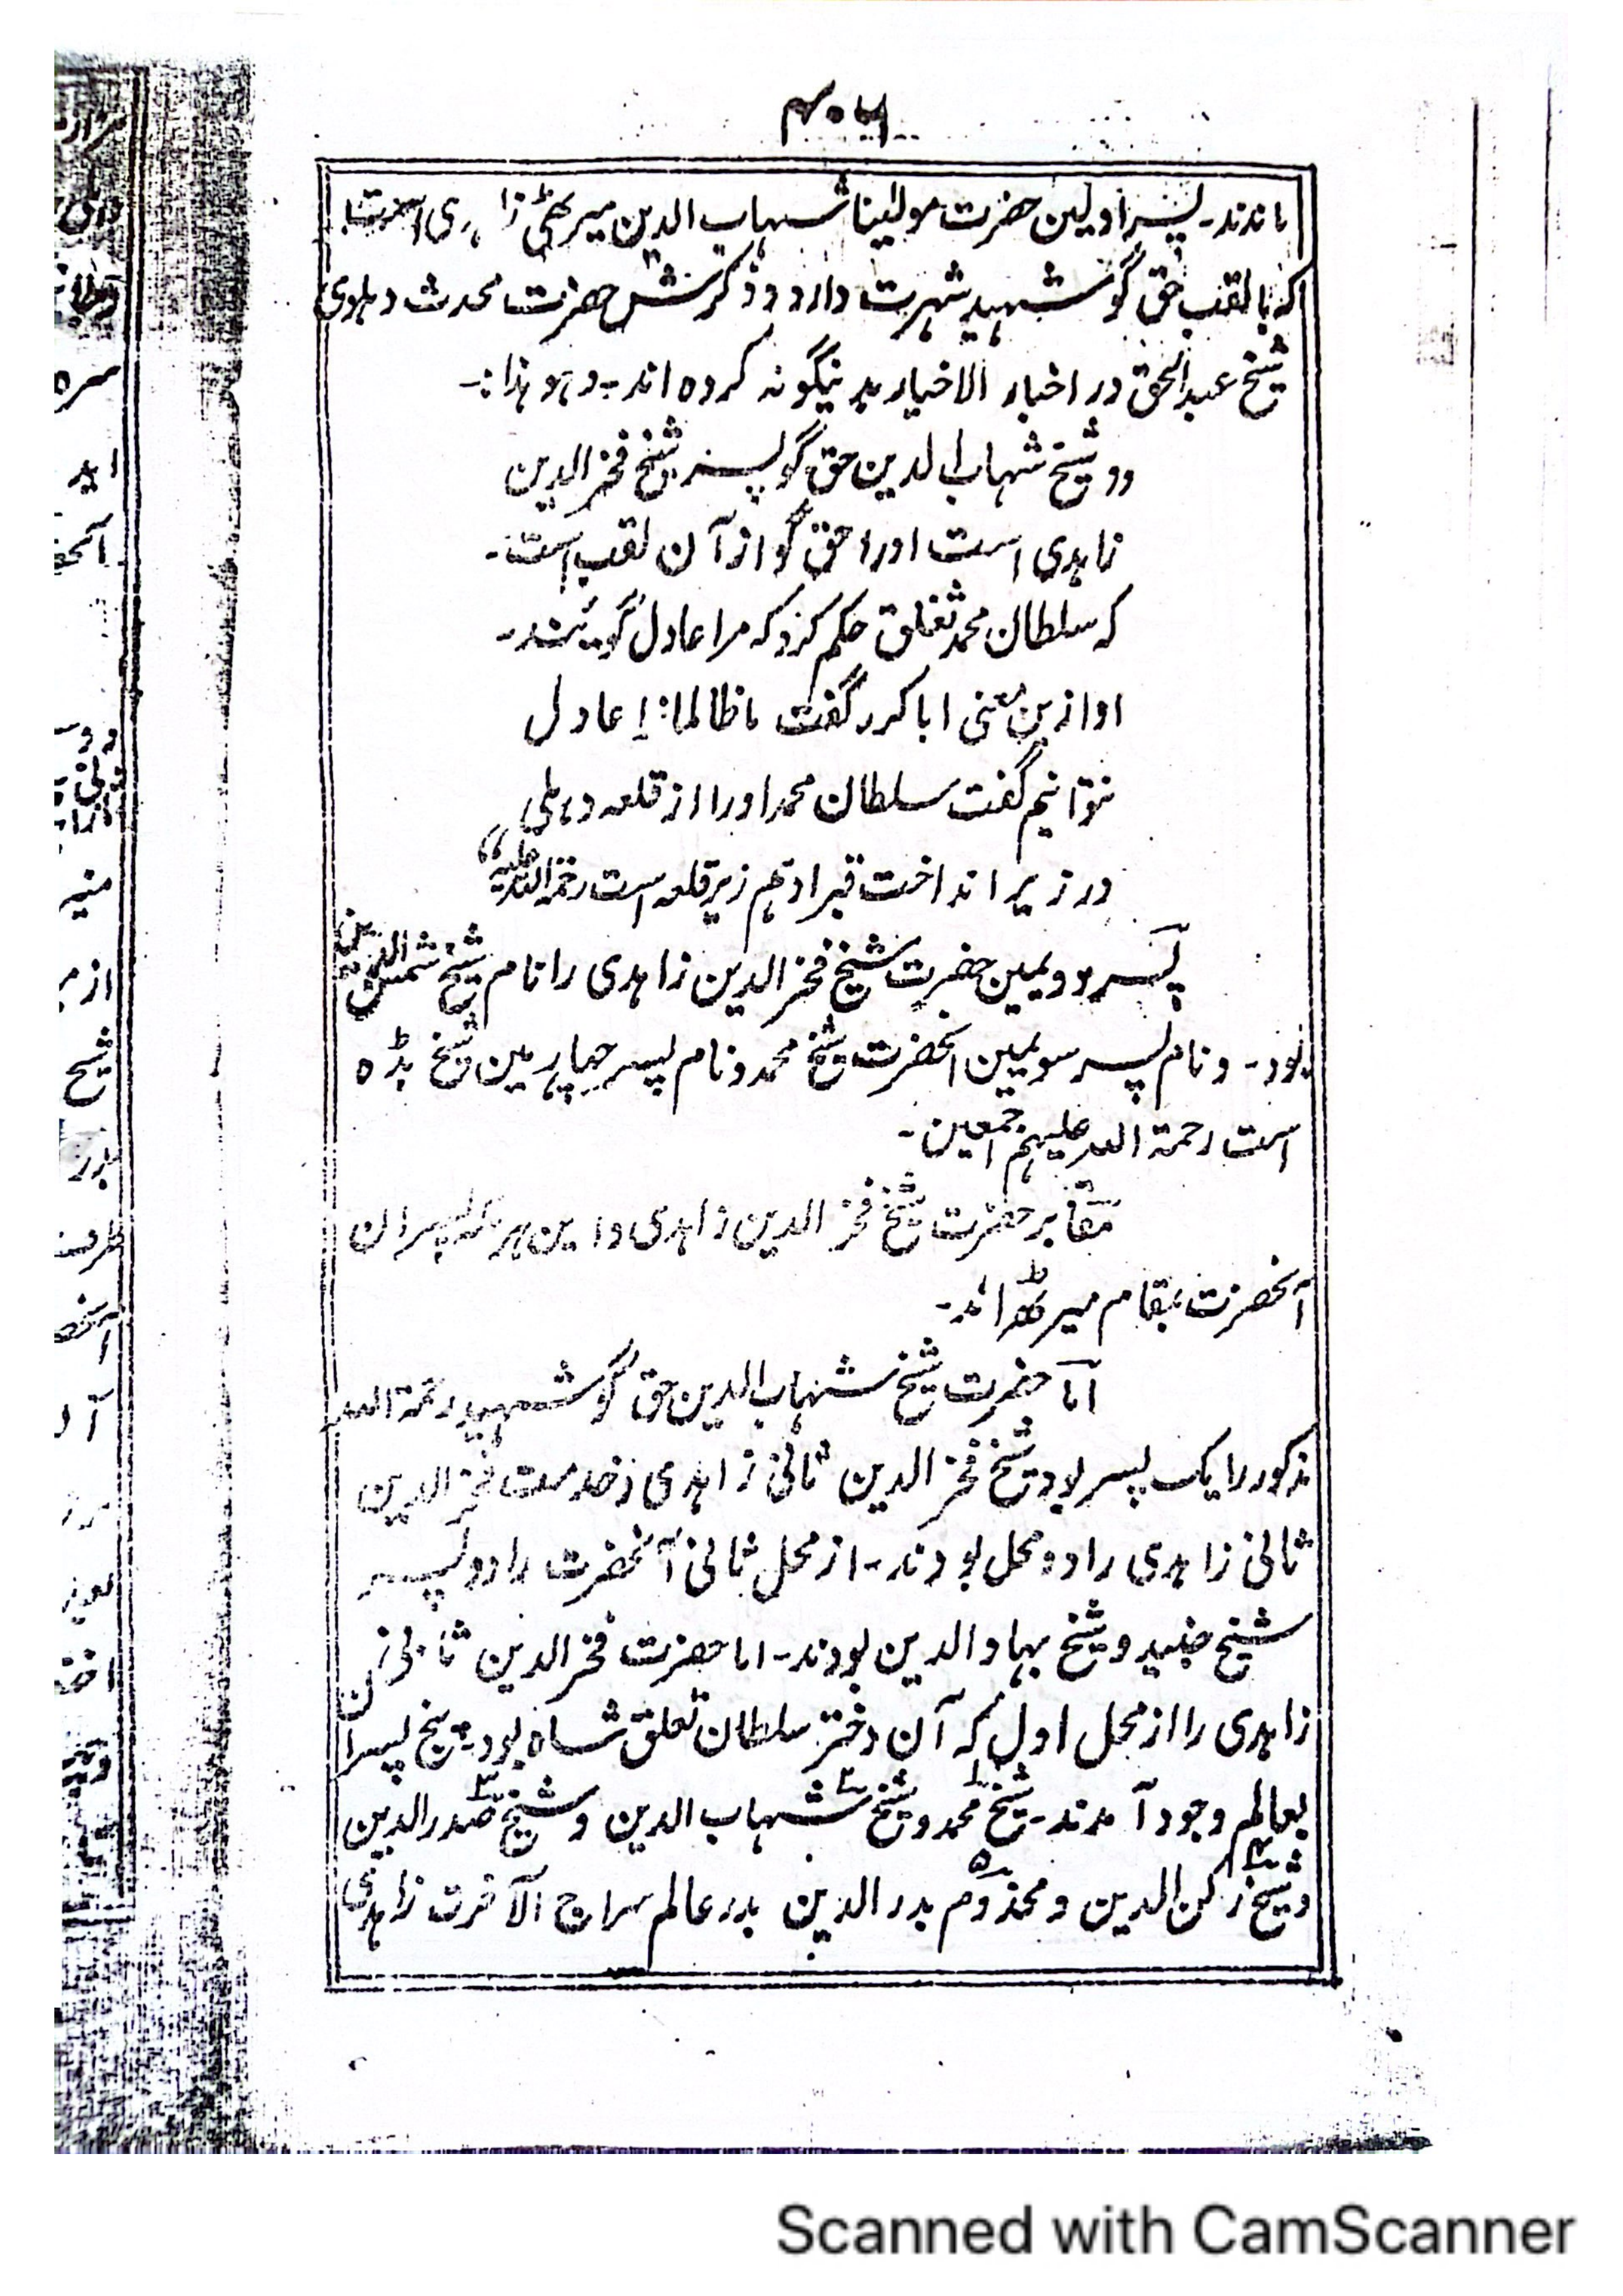 ماندند۔ پسر اولین حضرت مولینا شہاب الدین میرٹھی زاہدی است
کہ بالقب حق گو شہید شہرت دارد و ذکرش حضرت محدث دہلوی
شیخ عبدالحق در اخبار الاخیار بدینگونہ کردہ اند۔ وہو ہذا:۔
دو شیخ شہاب الدین حق گو پسر شیخ فخر الدین
زاہدی است اورا حق گو از آن لقب است۔
کہ سلطان محمد تغلق حکم کرد کہ مرا عادل گویند۔
او ازین معنی ابا کرد گفت ما ظالما نرا عادل
نتوانیم گفت سلطان محمد اورا از قلعہ دہلی
در زیر انداخت قبر او ہم زیر قلعہ است رحمۃ اللہ علیہ“
پسر دویمین حضرت شیخ فخر الدین زاہدی را نام شیخ شمس الدین
بود۔ و نام پسر سویمین آنحضرت شیخ محمد و نام پسر چہارمین شیخ بڈہ
است رحمۃ اللہ علیہم اجمعین۔
مقابر حضرت شیخ فخر الدین زاہدی و این ہر سہ پسران
آنحضرت بمقام میرٹھ اند۔
اما حضرت شیخ شہاب الدین حق گو شہید رحمۃ اللہ
مذکور را یک پسر بود شیخ فخر الدین ثانی زاہدی حضرت فخر الدین
ثانی زاہدی را دو محل بودند۔ از محل ثانی آنحضرت را دو پسر
شیخ جنید و شیخ بہاو الدین بودند۔ اما حضرت فخر الدین ثانی
زاہدی را از محل اول کہ آن دختر سلطان تغلق شاہ بود پنج پسران
بعالم وجود آمدند۔ شیخ محمد و شیخ شہاب الدین و شیخ صدر الدین
و شیخ رکن الدین و مخدوم بدر الدین بدر عالم سراج الآخرت زاہدی
Scanned with CamScanner